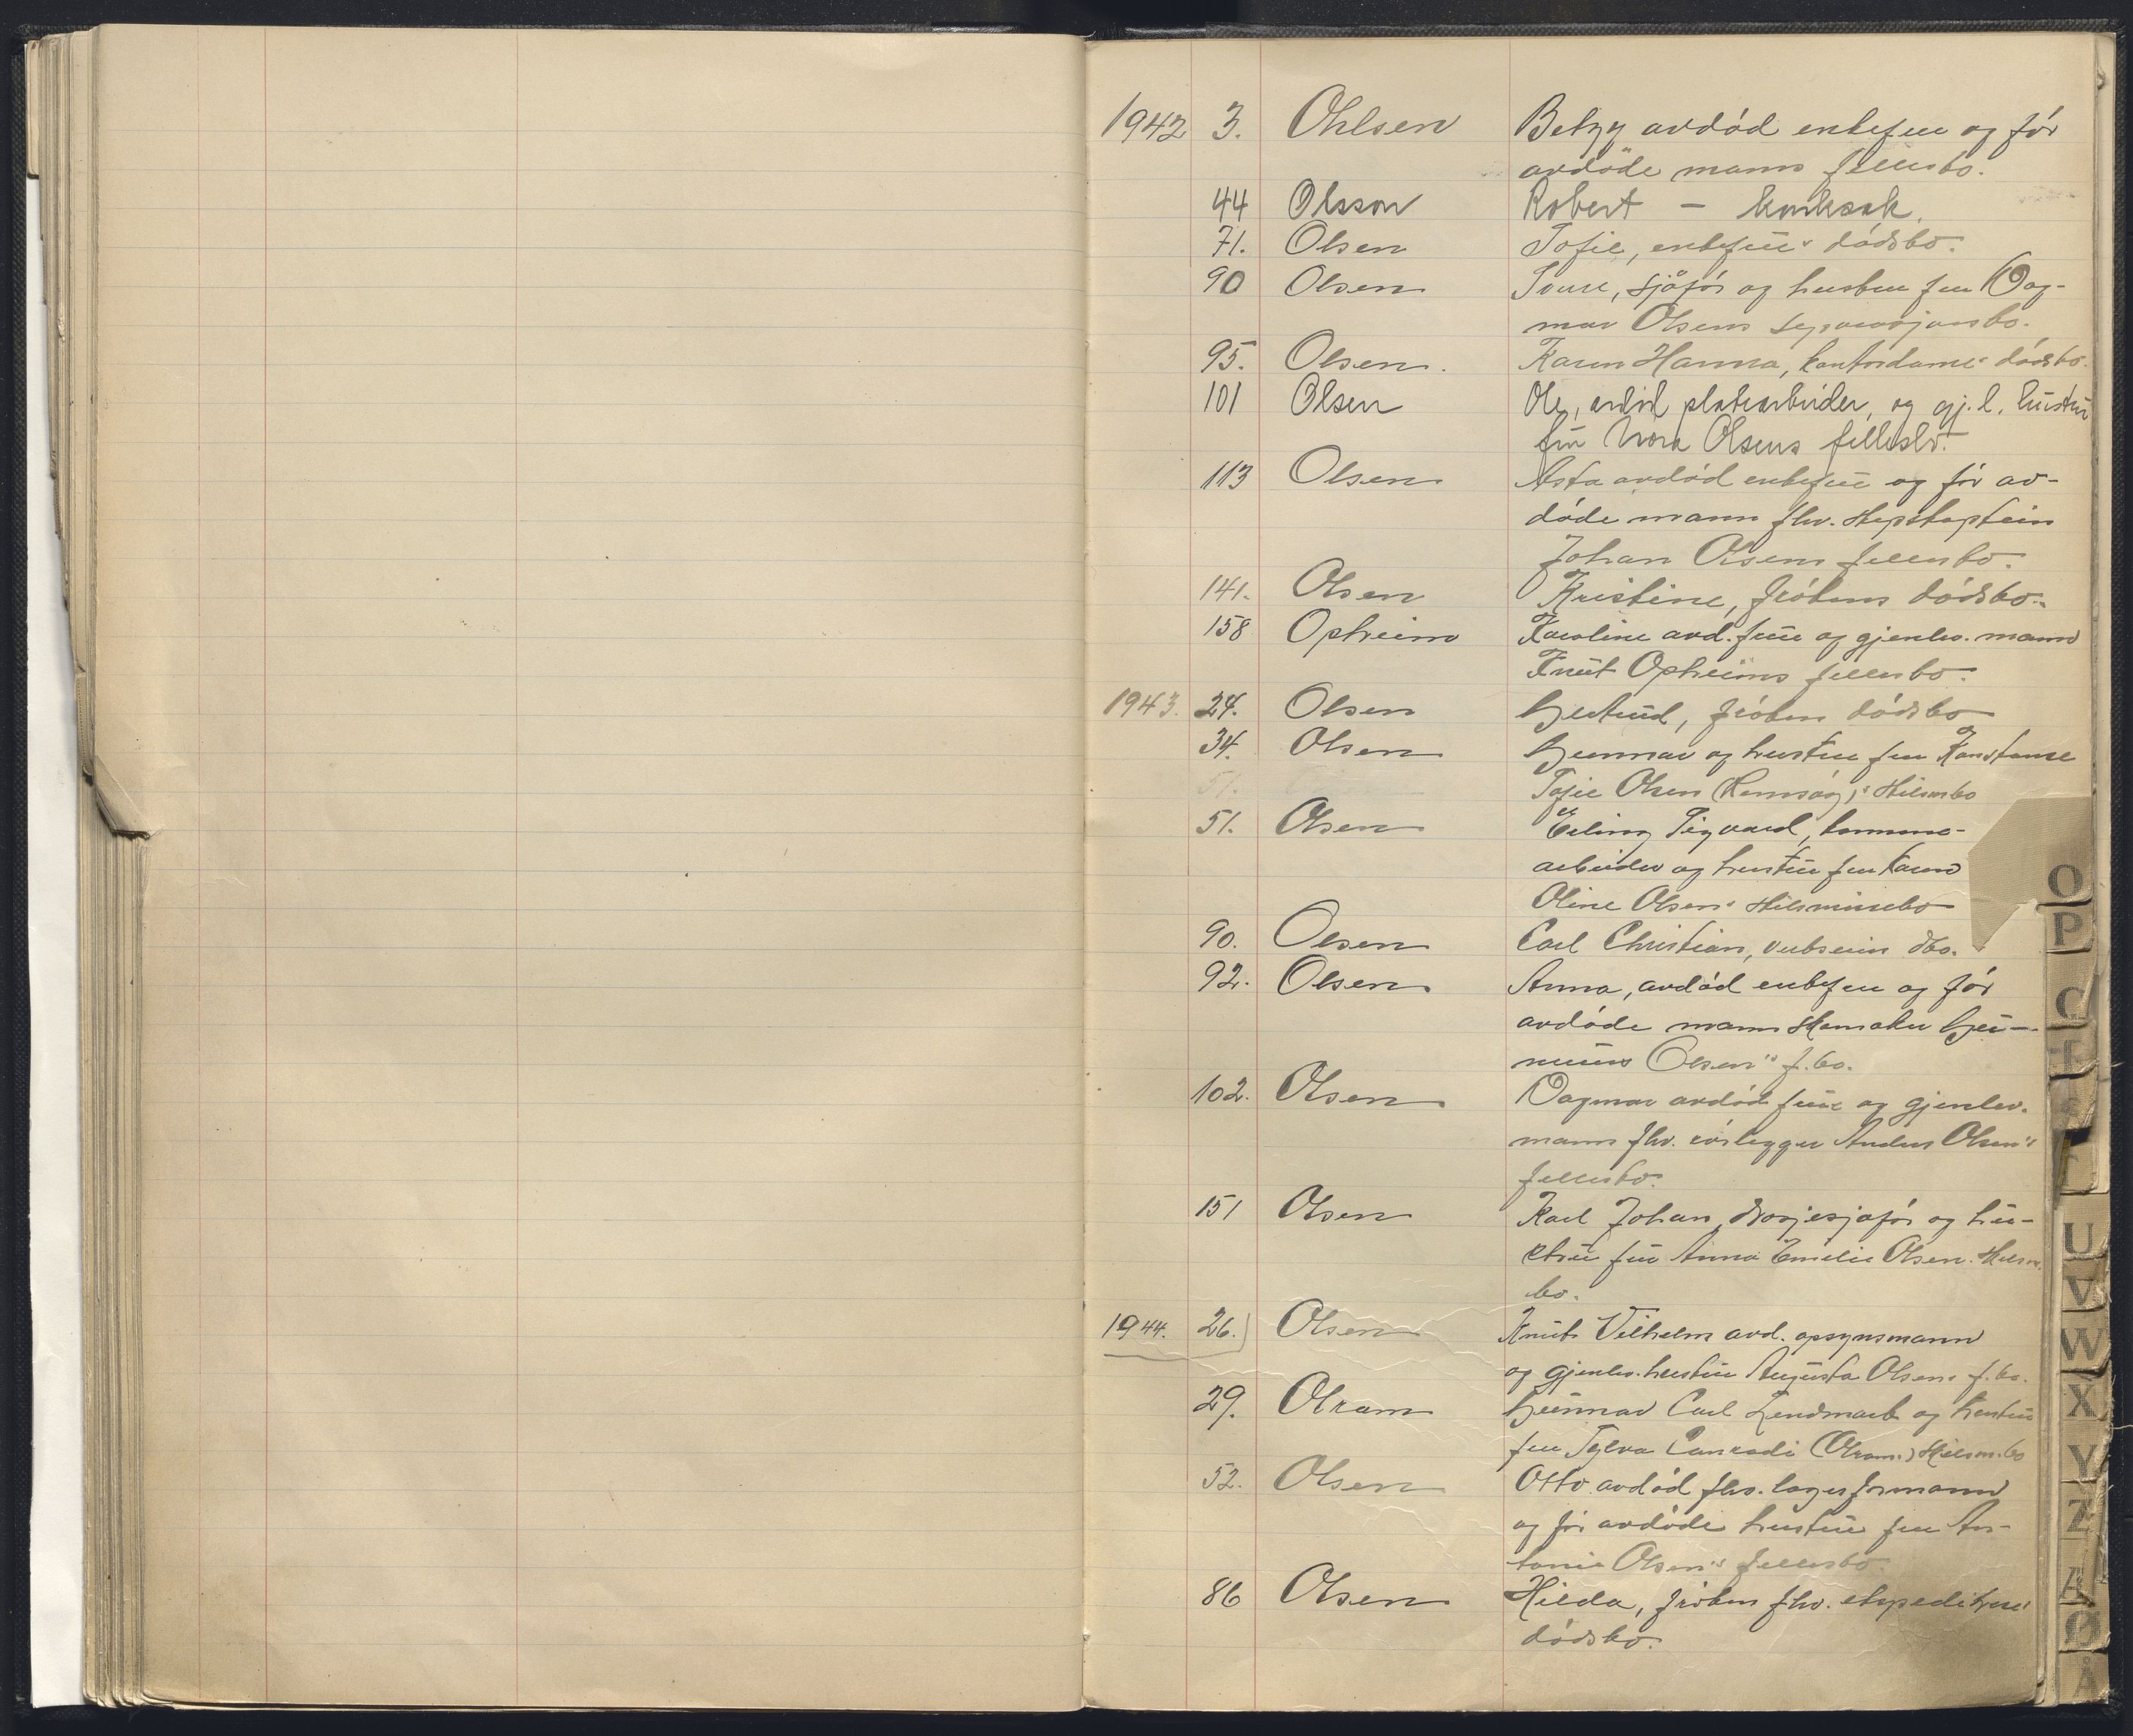 1942 3. Ohlsen Betzy avdód enkefru og fór
avdöde manns fellesbo.
44 Olsson Robert – konksak.
71. Olsen Sofie, enkefrus dódsbo.
90 Olsen sjåfór og hustru fru Dag-
mar Olsens separasjonsbo.
95. Olsen. Karen Hanna, kontordames dódsbo.
101 Olsen Ole, avdöd platearbeider, og gj.l. hustru
fru Nora Olsens fellesbo.
113 Olsen Asta avdód enkefrue og fór av-
dóde mann fhv. skipskaptein
Johan Olsens fellesbo.
141. Olsen Kristine, frókens dódsbo.
158 Opheim Karoline avd. frue og gjenlev. mann
Knut Opheims fellesbo.
1943. 24. Olsen Gjertrud, fróken dódsbo
34. Olsen Gunnar og hustru fru Konstanse
51. Sofie Olsen Skilsm.bo
51. Olsen Erling Sigvard, kommune-
arbeider og hustru fru Karen
Oline Olsens skilsmissebo
90. Olsen Carl Christian, dbo.
92. Olsen Anna, avdód enkefru og fór
avdóde mann skomaker Gu-
Olsen's f.bo.
102. Olsen Dagmar avdód frue og gjenlev.
mann fhv. rórlegger Anders Olsen's
fellesbo.
151 Olsen Karl Johan, drosjesjåfór og hu-
stru fru Anna Emilie Olsen. Skilsm.
bo.
1944. 26. Olsen Knut Vilhelm avd. opsynsmann
og gjenlev. hustru Augusta Olsens f.bo.
29. Olram Gunnar Carl Lendmark og hustru
fru Sylva Conradi (Olram) Skilsm.bo
52. Olsen Otto avdód fhv. lagerformann
og fór avdóde hustru fru An-
tonie Olsen's fellesbo.
86 Olsen Hilda, fróken fhv. ekspeditrise'
dódsbo.
O
P
U
V
W
X
Y
Z
Æ
Ø
Å